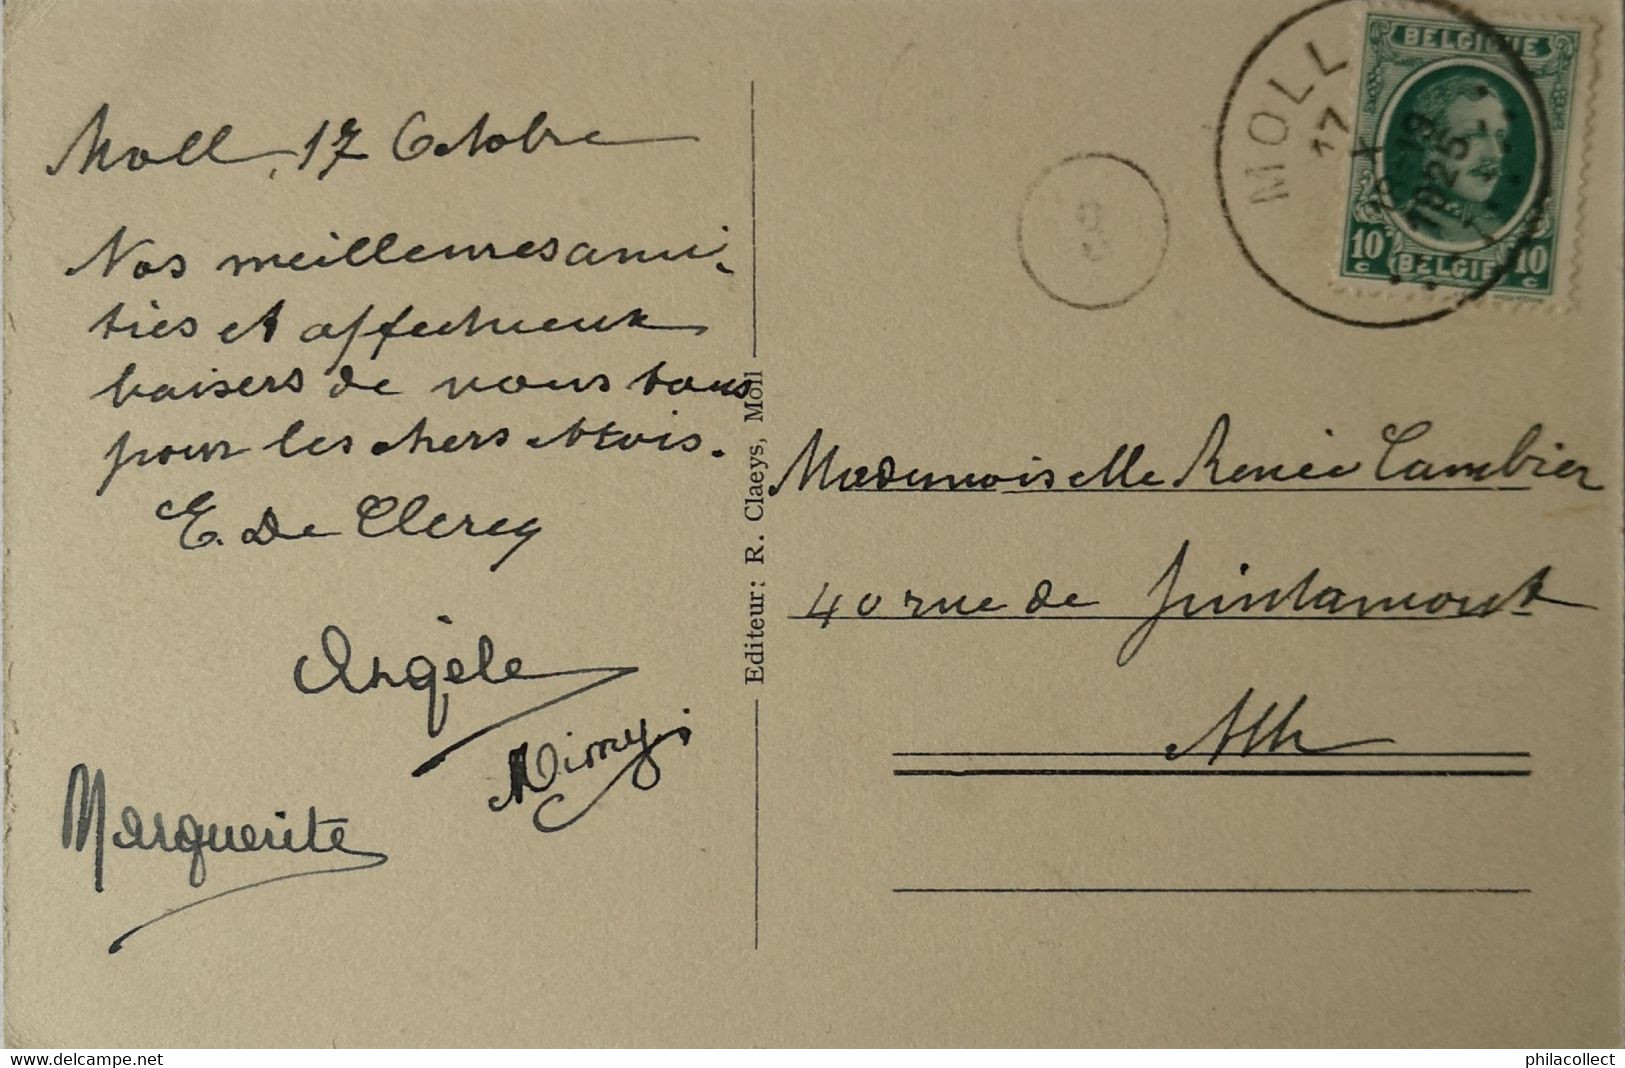 Moll, 17 Octobre
Nos meilleures ami-
tiés et affectueux
baisers de nous tous
pour les chers Athois.
E. De Clercq
Angèle
Mimy
Marguerite
Editeur: R. Claeys, Moll
3
MOLL
17
X
18-19
1925
BELGIQUE
10 c
BELGIE
10 c
Mademoiselle Renée Cambier
40 rue de Pintamont
Ath
www.delcampe.net
philacollect